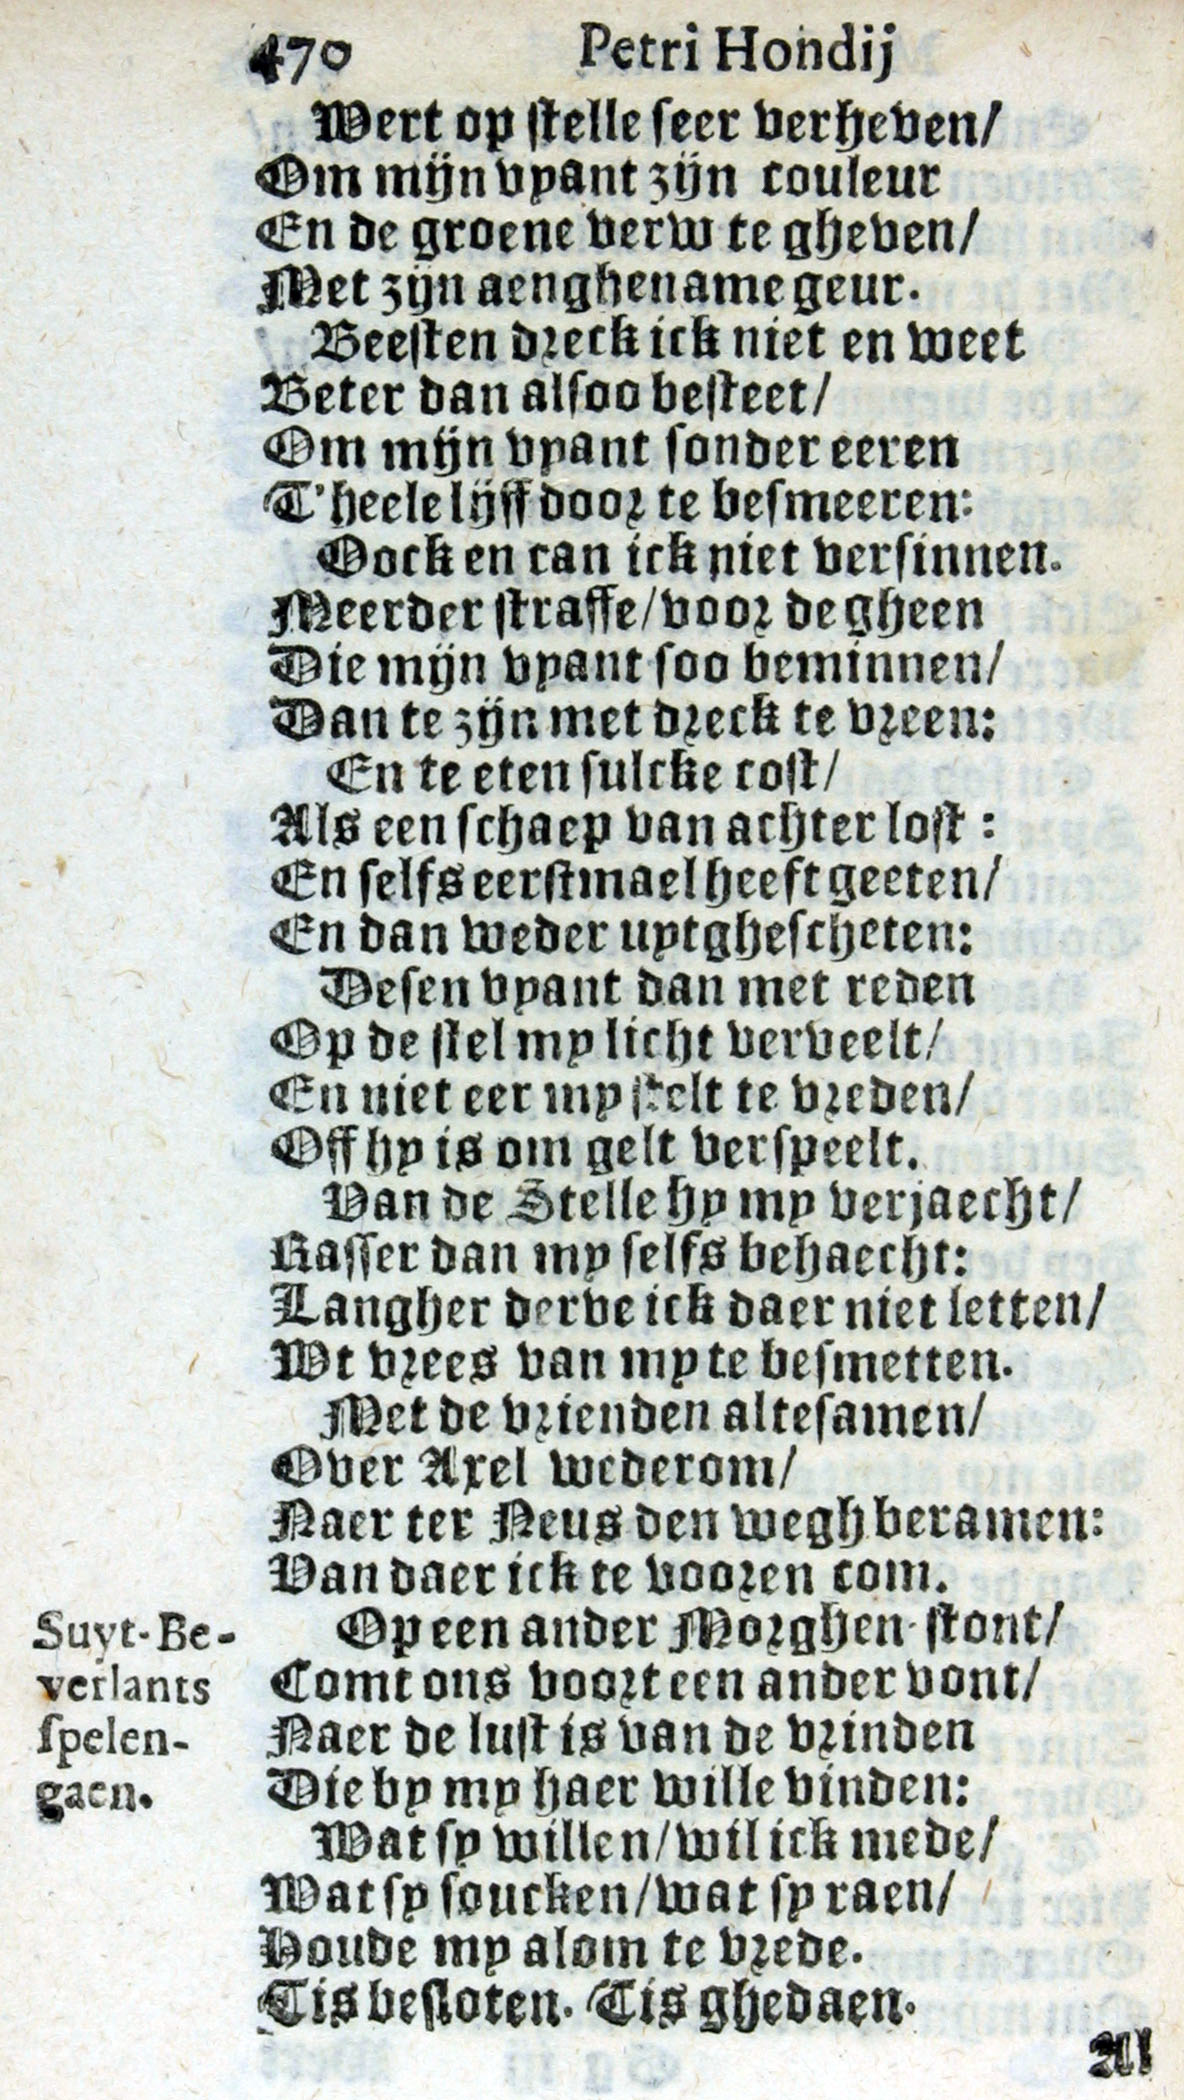 470 Petri Hondij
Wert op stelle seer verheven/
Om mijn vyant zijn couleur
En de groene verw te gheven/
Met zijn aenghename geur.
Beesten dreck ick niet en weet
Beter dan alsoo besteet/
Om mijn vyant sonder eeren
T'heele lijff door te besmeeren:
Oock en can ick niet versinnen.
Meerder straffe/voor de gheen
Die mijn vyant soo beminnen/
Dan te zijn met dreck te vreen:
En te eten sulcke cost/
Als een schaep van achter lost :
En selfs eerstmael heeft geeten/
En dan weder uytghescheten:
Desen vyant dan met reden
Op de stel my licht verveelt/
En niet eer my stelt te vreden/
Off hy is om gelt verspeelt.
Van de Stelle hy my verjaecht/
Rasser dan my selfs behaecht:
Langher derve ick daer niet letten/
Wt vrees van my te besmetten.
Met de vrienden altesamen/
Over Axel wederom/
Naer ter Neus den wegh beramen:
Van daer ick te vooren com.
Suyt-Be-
verlants
spelen-
gaen.
Op een ander Morghen-stont/
Comt ons voort een ander vont/
Naer de lust is van de vrinden
Die by my haer wille vinden:
Wat sy willen/wil ick mede/
Wat sy soucken/wat sy raen/
Houde my alom te vrede.
Tis besloten. Tis ghedaen.
Al